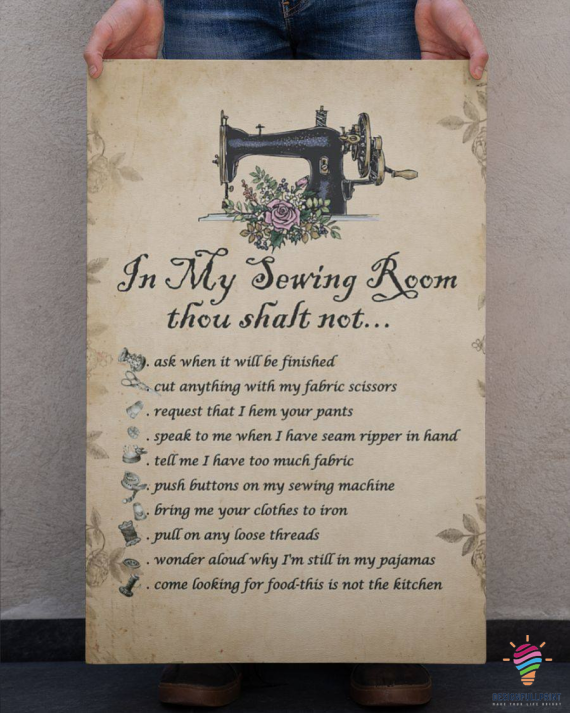 In My Sewing Room
thou shalt not...
. ask when it will be finished
. cut anything with my fabric scissors
. request that I hem your pants
. speak to me when I have seam ripper in hand
. tell me I have too much fabric
. push buttons on my sewing machine
. bring me your clothes to iron
. pull on any loose threads
. wonder aloud why I'm still in my pajamas
. come looking for food-this is not the kitchen
MAKE YOUR LIFE BRIGHT